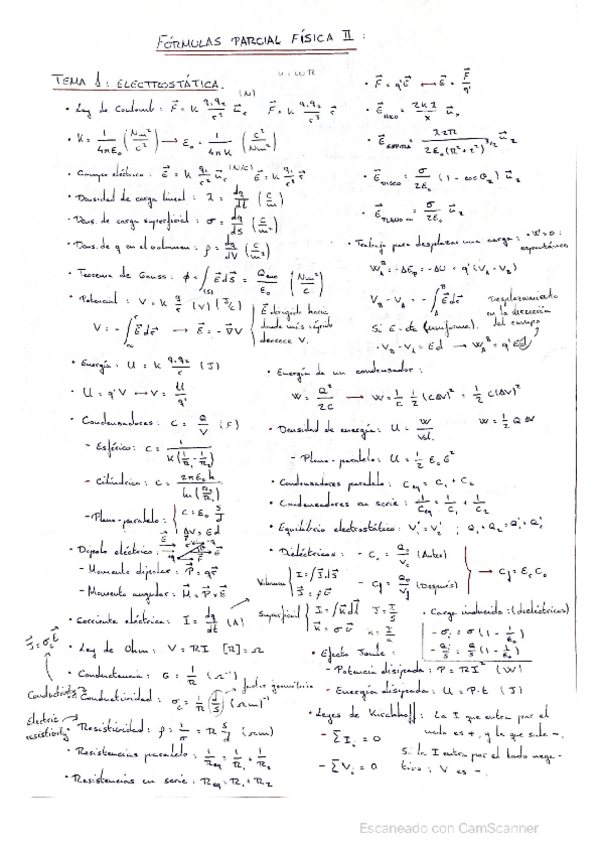 FÓRMULAS PARCIAL FÍSICA II :
TEMA 1: ELECTROSTÁTICA.
• Ley de Coulomb: F = K q₁q₂/r² u_r (N) F = K q₁q₂/r³ r
• K = 1/4πε₀ (Nm²/c²) → ε₀ = 1/4πK (c²/Nm²)
• Campo eléctrico: E = K q₁/r² u_r (N/c) E = K q₁/r³ r
• Densidad de carga lineal: λ = dq/dl (c/m)
• Dens. de carga superficial: σ = dq/dS (c/m²)
• Dens. de q en el volumen: ρ = dq/dV (c/m³)
• Teorema de Gauss: ϕ = ∫ E dS = Q/ε₀ (Nm²/c)
• Potencial: V = K q/r (V) (J/c)
V = -∫ E dr → E = -∇V
E dirigido hacia
donde más rápido
decrece V.
• Energía: U = K q₁q₂/r (J)
• U = q'V ↔ V = U/q'
• Condensadores: C = Q/V (F)
- Esférico: C = 1/K(1/R₁ - 1/R₂)
- Cilíndrico: C = 2πε₀h/ln(R₂/R₁)
- Plano-paralelo: C = ε₀ S/d
ΔV = Ed
• Dipolo eléctrico:
- Momento dipolar: P = qr
- Momento angular: M = P × E
• Corriente eléctrica: I = dq/dt (A)
• Ley de Ohm: V = RI [R] = Ω
• Conductancia: G = 1/R (Ω⁻¹)
• Conductividad: σc = 1/R (d/S) (Ωm)⁻¹
factor geométrico
J = σc E
Conductivity
Electric
resistivity
• Resistividad: ρ = 1/σ = R S/d (Ωm)
• Resistencias paralelo: 1/Req = 1/R₁ + 1/R₂
• Resistencias en serie: Req = R₁ + R₂
• F = q'E ↔ E = F/q'
• E = 2Kλ/x u_x
• E = λzR/2ε₀(R²+z²)^3/2 u_z
• E_DISCO = σ/2ε₀ (1 - cosθ₂) u_z
• E_PLANO = σ/2ε₀ u_z
• Trabajo para desplazar una carga:
W = -ΔEp = -ΔU = q'(V_A - V_B)
V_B - V_A = -∫ E dr
Desplazamiento
en la dirección
del campo
Si E = cte (uniforme).
• V_B - V_A = Ed → W = q'Ed
• Energía de un condensador:
W = Q²/2C → W = 1/C 1/2 (CΔV)² = 1/2 C(ΔV)²
W = 1/2 Q ΔV
• Densidad de energía: U = W/Vol.
- Plano-paralelo: U = 1/2 ε₀ E²
• Condensadores paralelo: Ceq = C₁ + C₂
• Condensadores en serie: 1/Ceq = 1/C₁ + 1/C₂
• Equilibrio electrostático: V₁' = V₂' ; Q₁ + Q₂ = Q₁' + Q₂'
• Dieléctricos: - C₀ = Q₀/V₀ (Antes)
- Cf = Q₀/Vf (Después) → Cf = εr C₀
Volumen I = ∫ J dS
J = ρ v
Superficial I = ∫ K dl J = I/S
K = σ v K = I/L
• Carga inducida: (dieléctricos)
- σi = σ (1 - 1/εr)
- Qi/S = Q/S (1 - 1/εr)
• Efecto Joule:
- Potencia disipada: P = RI² (W)
- Energía disipada: U = P·t (J)
• Leyes de Kirchhoff: La I que entra por el
nudo es +, y la que sale -.
- ∑ Ii = 0
Si la I entra por el lado nega-
- ∑ Vi = 0 tivo: V es -.
Escaneado con CamScanner